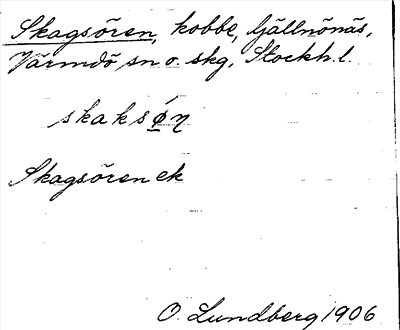 Skagsören, kobbe, Gjällnönäs,
Värmdö sn o. skg, Stockh. l.
skaksǿn
Skagsören ek
O. Lundberg 1906